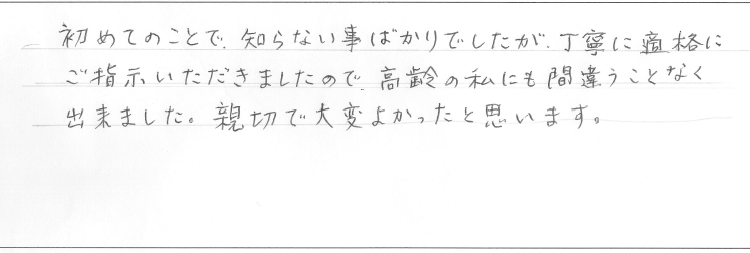 初めてのことで、知らない事ばかりでしたが、丁寧に適格に
ご指示いただきましたので、高齢の私にも間違うことなく
出来ました。親切で大変よかったと思います。